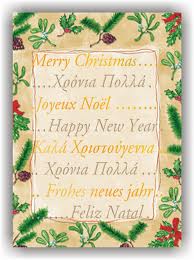 Merry Christmas...
...Χρόνια Πολλά...
Joyeux Noël........
...Happy New Year
Καλά Χριστούγεννα
...Χρόνια Πολλά...
Frohes neues jahr
....Feliz Natal